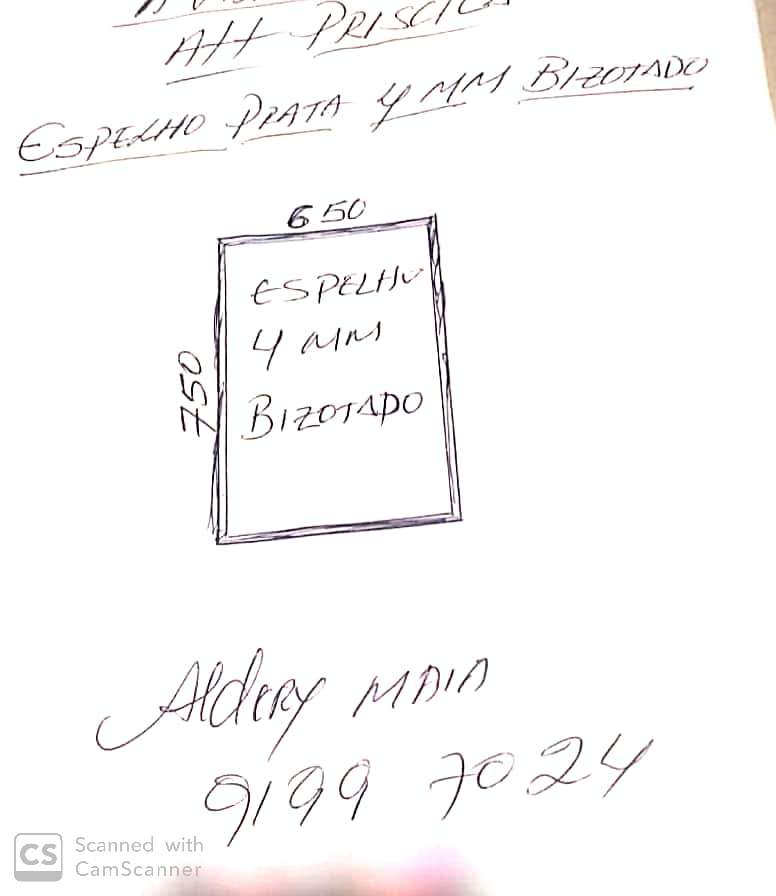 Att PRISCIL
ESPELHO PRATA 4 MM BIZOTADO
650
ESPELHO
4 MM
750
BIZOTADO
Aldery MAIA
9199 7024
CS Scanned with
CamScanner